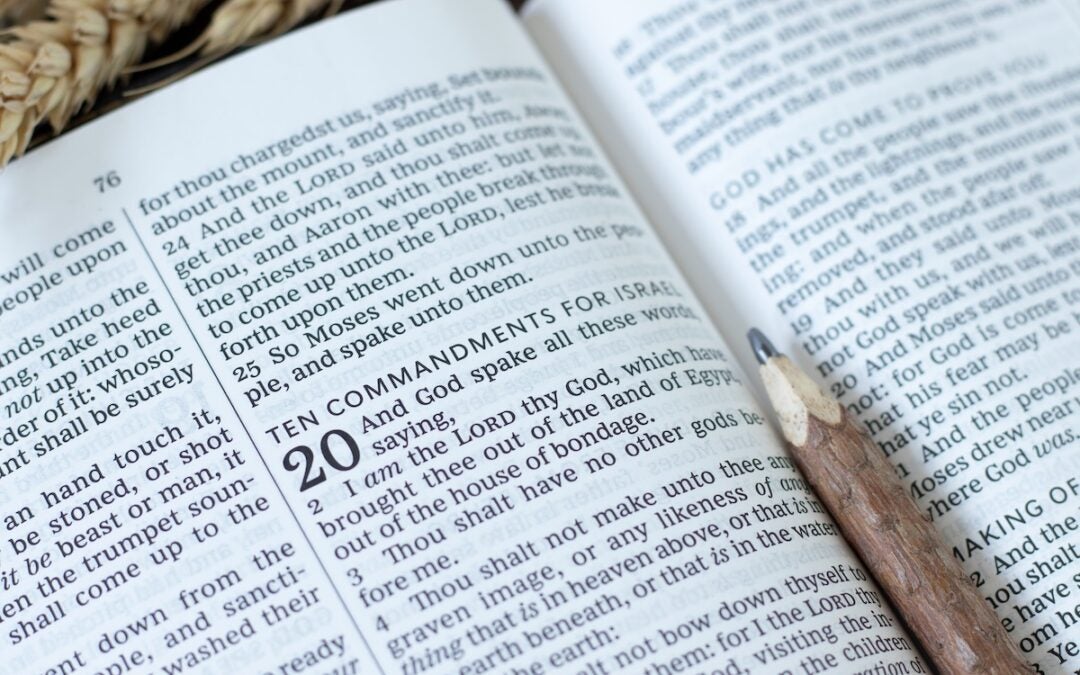 76
will come
people upon
nds unto the
ng, Take heed
not up into the
der of it: whoso-
nt shall be surely
an hand touch it,
be stoned, or shot
it be beast or man, it
en the trumpet soun-
shall come up to the
ent down from the
ople, and sancti-
washed their
ready
for thou chargedst us, saying, Set bounds
about the mount, and sanctify it.
24 And the LORD said unto him, Away,
get thee down, and thou shalt come up,
thou, and Aaron with thee: but let not
the priests and the people break through
to come up unto the LORD, lest he break
forth upon them.
25 So Moses went down unto the peo-
ple, and spake unto them.
TEN COMMANDMENTS FOR ISRAEL
20 And God spake all these words,
saying,
2 I am the LORD thy God, which have
brought thee out of the land of Egypt,
out of the house of bondage.
3 Thou shalt have no other gods be-
fore me.
4 Thou shalt not make unto thee any
graven image, or any likeness of any
thing that is in heaven above, or that is in
earth beneath, or that is in the water
the earth:
alt not bow down thyself to
them: for I the LORD thy
God, visiting the in-
n the children
ration of
bour's wife, nor his
maidservant, nor his ox, nor
any thing that is thy neighbour's.
GOD HAS COME TO PROVE YOU
18 And all the people saw the
ings, and the lightnings, and the
the trumpet, and the mountain
ing: and when the people saw
removed, and stood afar off.
19 And they said unto
thou with us, and we will
not God speak with us, lest
20 And Moses said unto
not: for God is come to
that his fear may be
that ye sin not.
And the people
Moses drew near
where God was.
MAKING OF
And the
hou shalt
e have s
om he
Ye